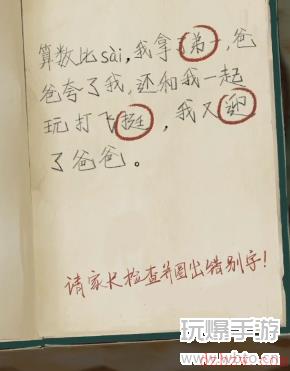 算数比sài,我拿了弟一,爸
爸夸了我,还和我一起
玩打飞挺,我又迎
了爸爸。
请家长检查并圈出错别字!
玩爆手游